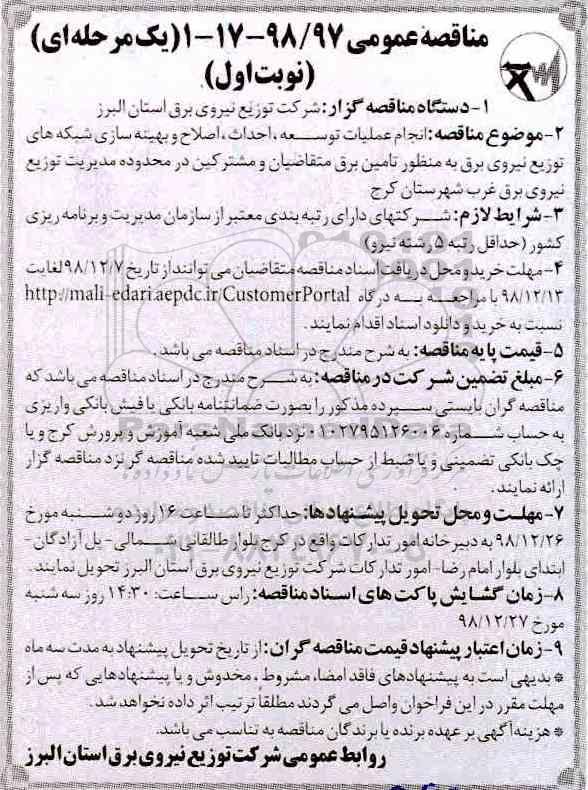 مناقصه عمومی ۹۸/۹۷-۱۷-۱ (یک مرحله ای)
(نوبت اول)
۱-دستگاه مناقصه گزار: شرکت توزیع نیروی برق استان البرز
۲-موضوع مناقصه: انجام عملیات توسعه، احداث، اصلاح و بهینه سازی شبکه های
توزیع نیروی برق به منظور تامین برق متقاضیان و مشترکین در محدوده مدیریت توزیع
نیروی برق غرب شهرستان کرج
۳-شرایط لازم: شرکتهای دارای رتبه بندی معتبر از سازمان مدیریت و برنامه ریزی
کشور (حداقل رتبه ۵ رشته نیرو)
۴-مهلت خرید و محل دریافت اسناد مناقصه متقاضیان می توانند از تاریخ ۹۸/۱۲/۷ لغایت
۹۸/۱۲/۱۳ با مراجعه به درگاه http://mali-edari.aepdc.ir/CustomerPortal
نسبت به خرید و دانلود اسناد اقدام نمایند.
۵-قیمت پایه مناقصه: به شرح مندرج در اسناد مناقصه می باشد.
۶-مبلغ تضمین شرکت در مناقصه: به شرح مندرج در اسناد مناقصه می باشد که
مناقصه گران بایستی سپرده مذکور را بصورت ضمانتنامه بانکی یا فیش بانکی واریزی
به حساب شماره ۰۱۰۲۷۹۵۱۲۶۰۰۶ نزد بانک ملی شعبه آموزش و پرورش کرج و یا
چک بانکی تضمینی و یا ضبط از حساب مطالبات تایید شده مناقصه گر نزد مناقصه گزار
ارائه نمایند.
۷-مهلت و محل تحویل پیشنهادها: حداکثر تا ساعت ۱۶ روز دوشنبه مورخ
۹۸/۱۲/۲۶ به دبیرخانه امور تدارکات واقع در کرج-بلوار طالقانی شمالی-پل آزادگان-
ابتدای بلوار امام رضا-امور تدارکات شرکت توزیع نیروی برق استان البرز تحویل نمایند.
۸-زمان گشایش پاکت های اسناد مناقصه: راس ساعت: ۱۴:۳۰ روز سه شنبه
مورخ ۹۸/۱۲/۲۷
۹-زمان اعتبار پیشنهاد قیمت مناقصه گران: از تاریخ تحویل پیشنهاد به مدت سه ماه
* بدیهی است به پیشنهادهای فاقد امضا، مشروط، مخدوش و یا پیشنهادهایی که پس از
مهلت مقرر در این فراخوان واصل می گردند مطلقاً ترتیب اثر داده نخواهد شد.
* هزینه آگهی بر عهده برنده یا برندگان مناقصه به تناسب می باشد.
روابط عمومی شرکت توزیع نیروی برق استان البرز